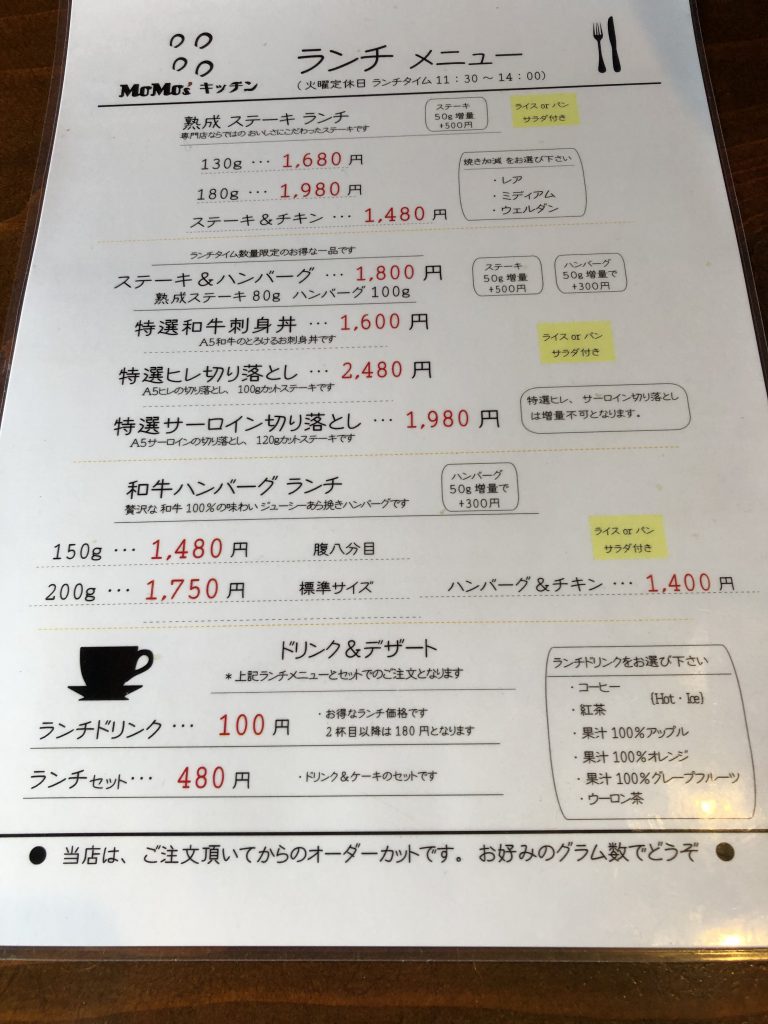 MoMos' キッチン
ランチ メニュー
(火曜定休日 ランチタイム 11:30 ~ 14:00)
熟成 ステーキ ランチ
専門店ならではの おいしさにこだわったステーキです
ステーキ
50g 増量
+500円
ライス or パン
サラダ付き
130g ··· 1,680 円
180g ··· 1,980 円
ステーキ&チキン ··· 1,480 円
焼き加減 をお選び下さい
・レア
・ミディアム
・ウェルダン
ランチタイム数量限定のお得な一品です
ステーキ&ハンバーグ ··· 1,800 円
熟成ステーキ 80g ハンバーグ 100g
ステーキ
50g 増量
+500円
ハンバーグ
50g 増量で
+300円
特選和牛刺身丼 ··· 1,600 円
A5和牛のとろけるお刺身丼です
ライス or パン
サラダ付き
特選ヒレ切り落とし ··· 2,480 円
A5ヒレの切り落とし、100gカットステーキです
特選サーロイン切り落とし ··· 1,980 円
A5サーロインの切り落とし、120gカットステーキです
特選ヒレ、サーロイン切り落とし
は増量不可となります。
和牛ハンバーグ ランチ
贅沢な 和牛 100%の味わい ジューシーあら挽きハンバーグです
ハンバーグ
50g 増量で
+300円
ライス or パン
サラダ付き
150g ··· 1,480 円 腹八分目
200g ··· 1,750 円 標準サイズ ハンバーグ&チキン ··· 1,400 円
ドリンク&デザート
*上記ランチメニューとセットでのご注文となります
ランチドリンク ··· 100 円
・お得なランチ価格です
2杯目以降は 180 円となります
ランチセット ··· 480 円 ・ドリンク&ケーキのセットです
ランチドリンクをお選び下さい
・コーヒー
・紅茶
{Hot・Ice}
・果汁 100%アップル
・果汁 100%オレンジ
・果汁 100%グレープフルーツ
・ウーロン茶
● 当店は、ご注文頂いてからのオーダーカットです。お好みのグラム数でどうぞ ●